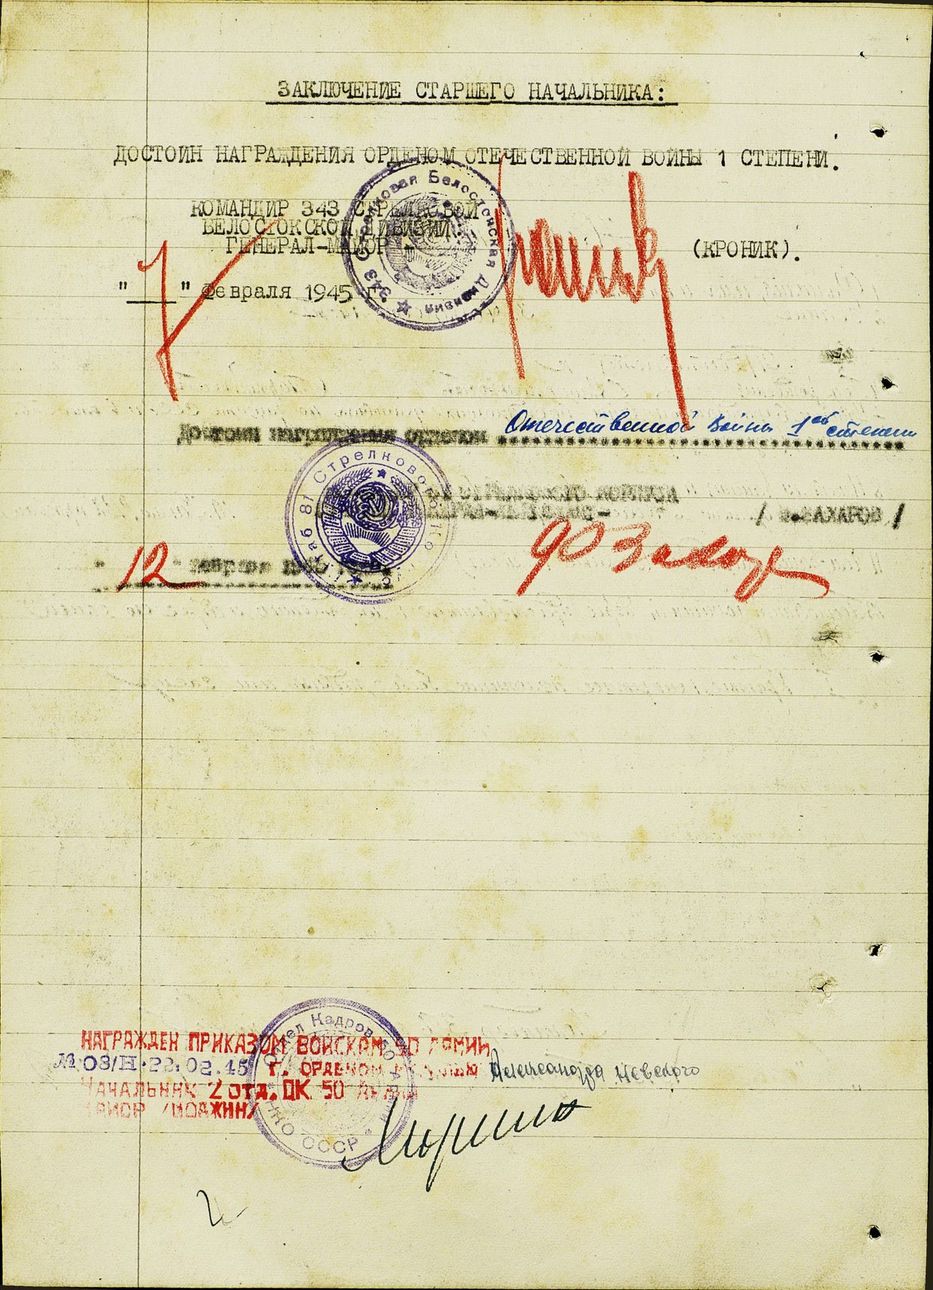 ЗАКЛЮЧЕНИЕ СТАРШЕГО НАЧАЛЬНИКА:
ДОСТОИН НАГРАЖДЕНИЯ ОРДЕНОМ ОТЕЧЕСТВЕННОЙ ВОЙНЫ 1 СТЕПЕНИ.
КОМАНДИР 343 СТРЕЛКОВОЙ
БЕЛОСТОКСКОЙ ДИВИЗИИ
ГЕНЕРАЛ-МАЙОР -
(КРОНИК).
"7" февраля 1945 г.
343 Стрелковая Белостокская Дивизия
Достоин награждения орденом Отечественной войны 1ой степени
СТРЕЛКОВОГО КОРПУСА
/ Ф.ЗАХАРОВ /
12 февраля
Штаб 81 Стрелкового
НАГРАЖДЕН ПРИКАЗОМ ВОЙСКАМ 50 АРМИИ
№ 08/Н 22.02.45 г. ОРДЕНОМ Александра Невского
НАЧАЛЬНИК 2 отд. ОК 50 АРМИИ
МАЙОР
Отдел Кадров 50 Армии
НКО СССР